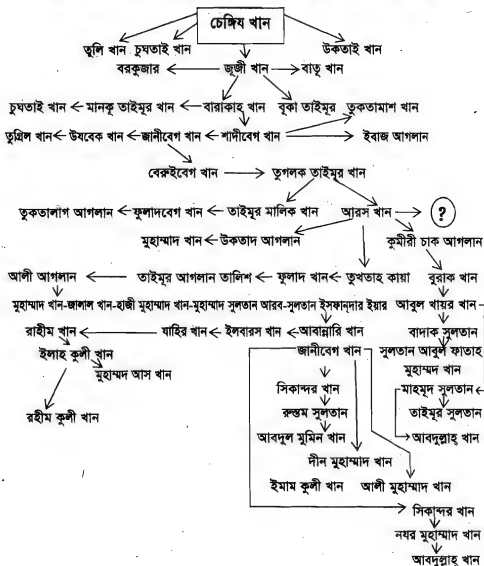 চেঙ্গিয খান
তুলি খান চুঘতাই খান উকতাই খান
বরকুজার জূজী খান বাতূ খান
চুঘতাই খান মানকূ তাইমূর খান বারাকাহ্ খান বূকা তাইমূর তুকতামাশ খান
তুগ্রিল খান উযবেক খান জানীবেগ খান শাদীবেগ খান ইবাজ আগলান
বেরুইবেগ খান তুগলক তাইমূর খান
তুকতালাগ আগলান ফুলাদবেগ খান তাইমূর মালিক খান আরস খান ?
মুহাম্মাদ খান উকতাদ আগলান কুমীরী চাক আগলান
আলী আগলান তাইমূর আগলান তালিশ ফুলাদ খান তুখতাহ কায়া বুরাক খান
মুহাম্মাদ খান-জালাল খান-হাজী মুহাম্মাদ খান-মুহাম্মাদ সুলতান আরব-সুলতান ইসফান্দার ইয়ার আবুল খায়র খান
রাহীম খান যাহির খান ইলবারস খান আবান্নারি খান বাদাক সুলতান
ইলাহ কুলী খান জানীবেগ খান সুলতান আবুল ফাতাহ
মুহাম্মদ আস খান মুহাম্মদ খান
সিকান্দর খান মাহমূদ সুলতান
রহীম কুলী খান রুস্তম সুলতান তাইমূর সুলতান
আবদুল মুমিন খান আবদুল্লাহ্ খান
দীন মুহাম্মাদ খান
ইমাম কুলী খান আলী মুহাম্মাদ খান
সিকান্দর খান
নযর মুহাম্মাদ খান
আবদুল্লাহ্ খান